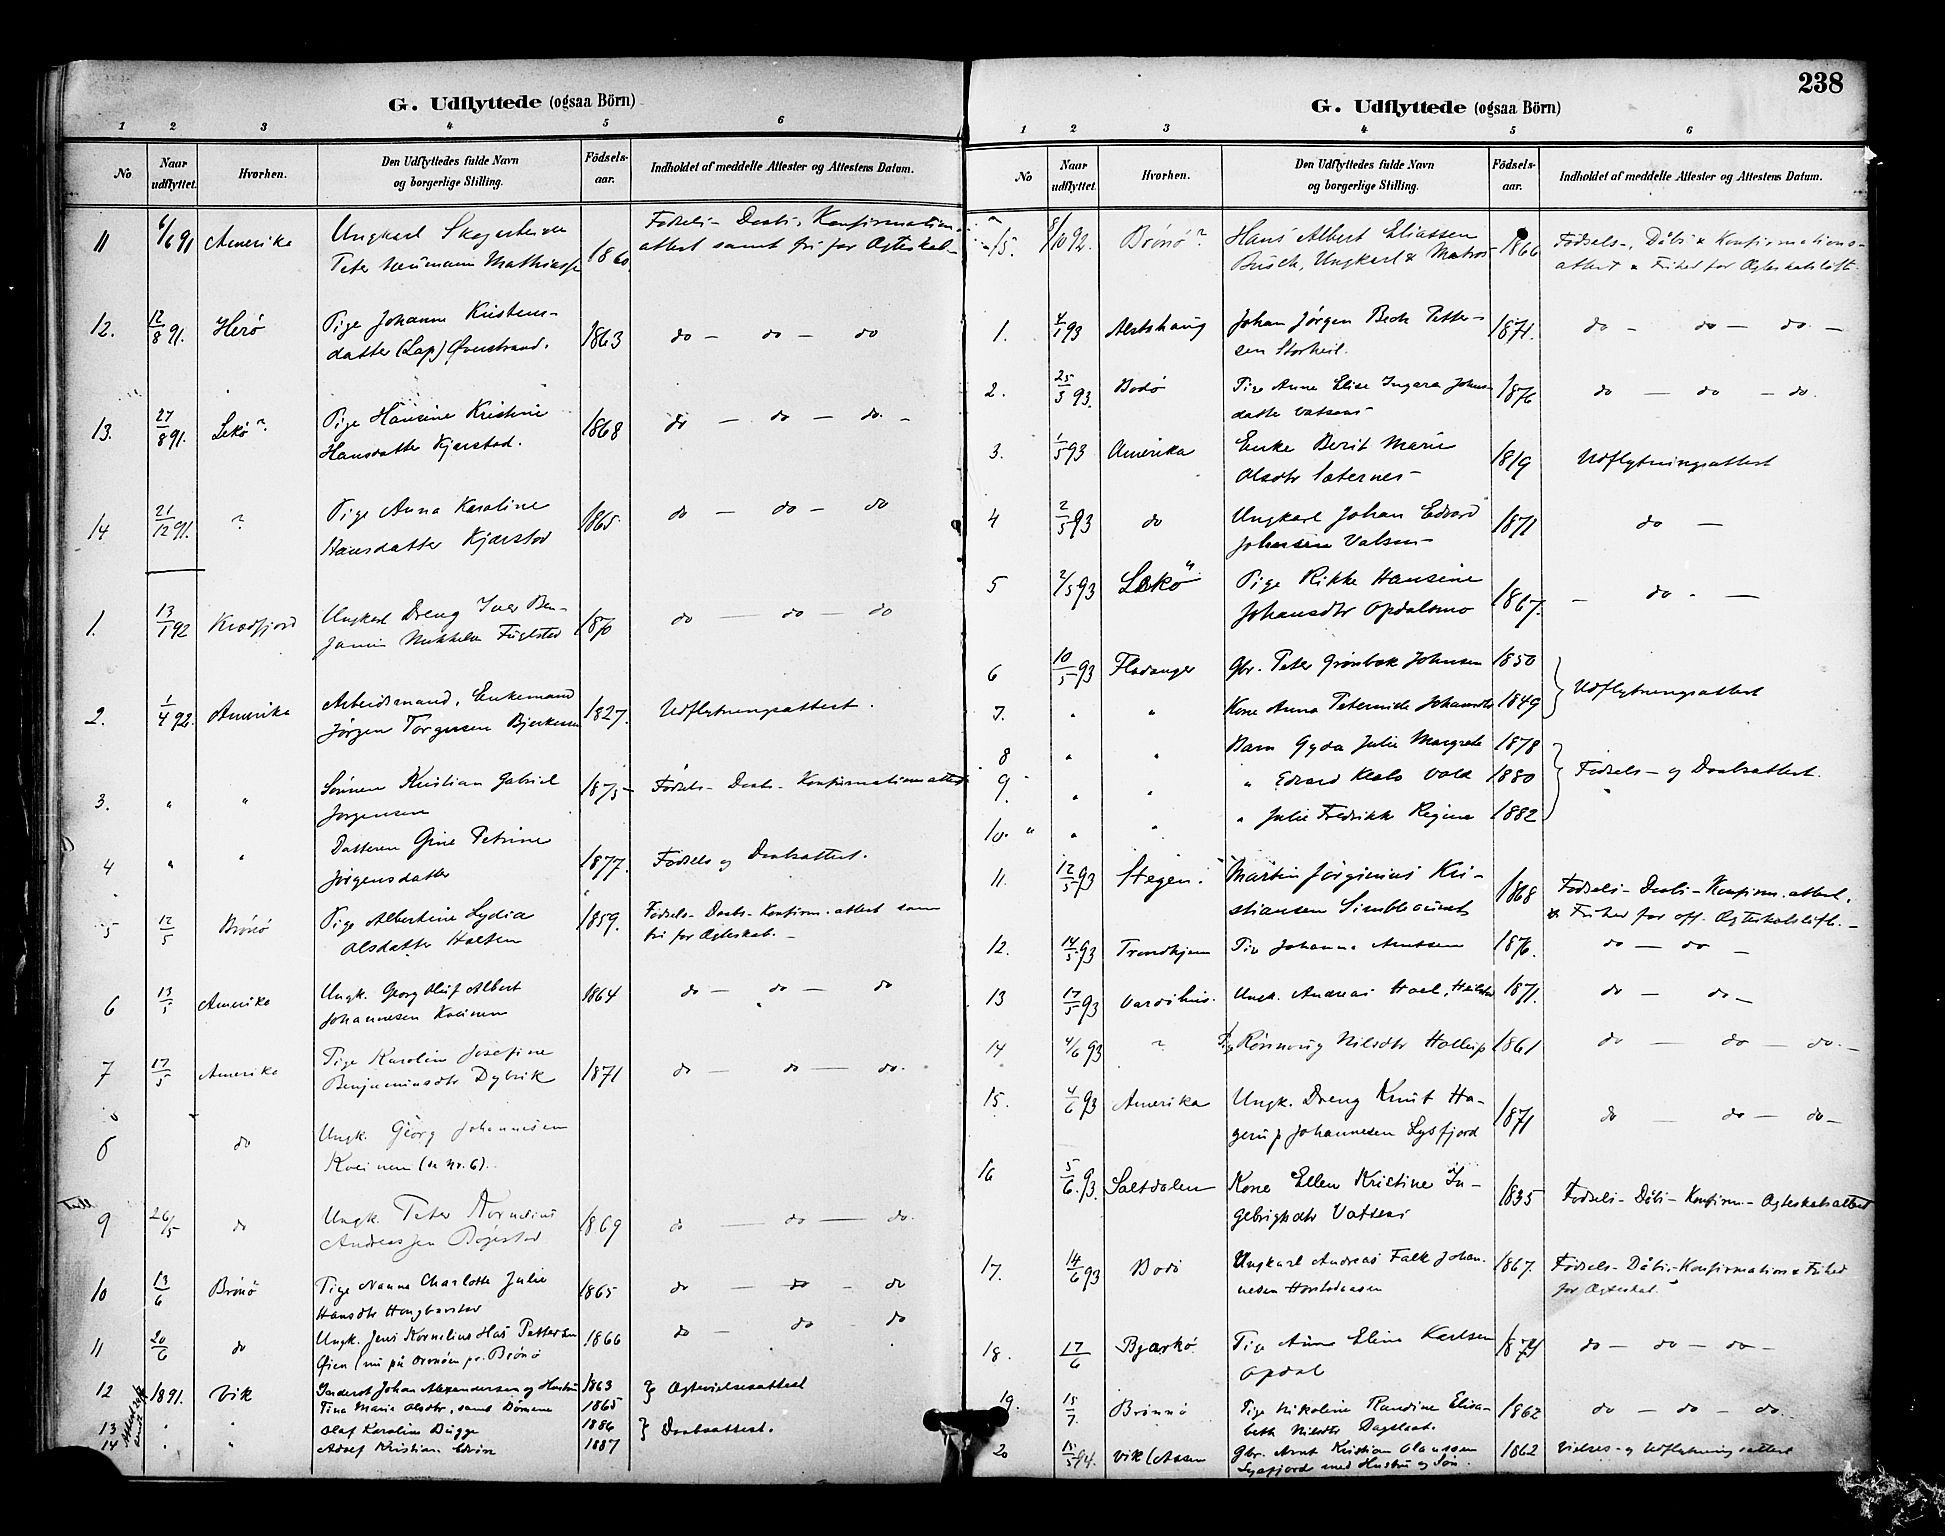 G. Udflyttede (ogsaa Börn)
1 2 3 4 5 6
No Naar udflyttet. Hvorhen. Den Udflyttedes fulde Navn og borgerlige Stilling. Födsels-aar. Indholdet af meddelte Attester og Attestens Datum.
11 6/6 91 Amerika Ungkarl
Peter Neumann Mathiass 1860 Fødsels- Daabs- Konfirmations-
attest samt fri for Egteskab
12. 12/8 91. Herø Pige Johanna Kristens-
datter (Lap) Øverstrand. 1863 do — do — do
13. 27/8 91. Lekø? Pige Hansine Kristine
Hansdatter Kjærstad. 1868 do — do — do –
14 21/12 91. ? Pige Anna Karoline
Hansdatter Kjærstad 1865 do — do — do
1. 13/1 92 Ungkarl Dreng Iver Ben-
jamin 1870 do — do — do
2. 1/4 92 Amerika Arbeidsmand, Enkemand
Jørgen Torgersen 1827. Udflytningsattest.
3. " " Sønnen Kristian Gabriel
Jørgensen 1875 Fødsels- Daabs- Konfirmationsattest
4 " " Datteren Gine Petrine
Jørgensdatter 1877. Fødsels og Daabsattest.
5 12/5 Brønø Pige Albertine Lydia
Olsdatter Holten 1859. Fødsels- Daabs- Konfirm. attest samt
fri for Egteskab. —
6 13/5 Amerika Ungk. Georg Oluf Albert
Johannesen Kveinen 1864 do — do — do
7 17/5 Amerika Pige Karolin Josefine
Benjaminsdtr Dybvik 1871 do — do — do.
8 do Ungk. Georg Johannesen
Kveinen (se Nr. 6).
9 26/5 do Ungk. Peter Kornelius
Andreassen Bøgestad 1869 do — do — do.
10 13/6 Brønø Pige Nanna Charlotte Julie
Hansdtr 1865 do — do — do
11 20/6 do Ungk. Jens Kornelius Petterson
Øien (nu på pr. Brønø 1866 do — do — do
12 1891. Vik Johan Alexandersen og Hustru 1863
Tina Marie Olsdtr, samt Børnene 1865 } Egtevielsesattest
13 " " Olaf Karolin Dugge 1886
14 " " Adolf Kristian Edvin 1887 } Daabsattest.
238
G. Udflyttede (ogsaa Börn)
1 2 3 4 5 6
No Naar udflyttet. Hvorhen. Den Udflyttedes fulde Navn og borgerlige Stilling. Födsels-aar. Indholdet af meddelte Attester og Attestens Datum.
15. 8/10 92. Brønø? Hans Albert Eliassen
Busch, Ungkarl & Matros 1866 Fødsels-, Dåbs & Konfirmations-
attest & Frihed for Egteskabsløfte.
1. 4/1 93 Alstahaug Johan Jørgen Bech Petter-
sen Storheil. 1871. do — do — do. —
2. 25/3 93. Bodø Pige Anne Elise Ingara Johns-
datter Vatsaas 1876 do — do — do.
3. 1/5 93 Amerika Enke Berit Marie
Olsdtr Sæternes 1819 Udflytningsattest
4 2/5 93 do Ungkarl Johan Edvard
Johansen 1871 do —
5 2/5 93 Lekø Pige Rikke Hansine
Johansdtr Opdalsmo 1867. — do. —
6 10/5 93 Fladanger Gbr. Peter Grønbæk Johnsen 1850
7. " " Kone Anna Johansdtr 1849 } Udflytningsattest
8 " " Barn Gyda Julie Margrete 1878
9. " " " Edvard 1880 } Fødsels- og Daabsattest.
10. " " " " Julie Fredrikke Regine 1882
11. 12/5 93 Stegen. Martin Jørginius Kri-
stiansen 1868 Fødsels- Daabs- Konfirm. attest,
& Frihed for off. Egteskabsløfte. —
12. 14/5 93 Trondhjem Pige Johanna Arntsen 1876. do — do —
13 17/5 93 Vardøhus. Ungk. Andreas Hoel, 1871. do — do —
14 4/6 93 ? Pige Rønnaug Nilsdtr 1861 do — do — do. —
15. 4/6 93 Amerika Ungk. Dreng Knut Ha-
gerup Johannesen Lysfjord 1871 do — do — do —
16 5/6 93. Saltdalen Kone Ellen Kristine In-
gebrigtsdtr Vatsaas 1835 Fødsels- Dåbs- Konfirm- Egteskabsattest
17. 14/6 93 Bodø Ungkarl Andreas Falk Johan-
nesen 1867. Fødsels- Dåbs- Konfirmation & Frihed
for Egteskab.
18. 17/6 Bjarkø Pige Anna Eline Karlsen
Opdal 1874 do — do — do —
19. 15/7. Brønnø Pige Nikoline Randine Elisa-
beth Nilsdtr Dagslaat. 1862 do — do — do.
20 15/5 94. Vik Gbr. Arnt Kristian Olaussen
Lysfjord med Hustru og Søn. 1862 Vielses- og Udflytningsattest